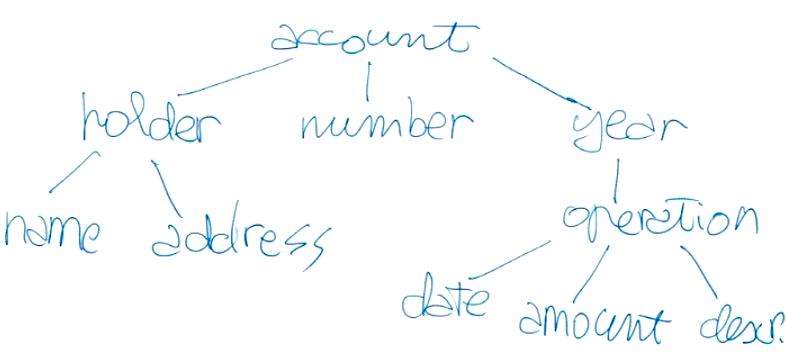 account
holder number year
name address
operation
date amount descr.